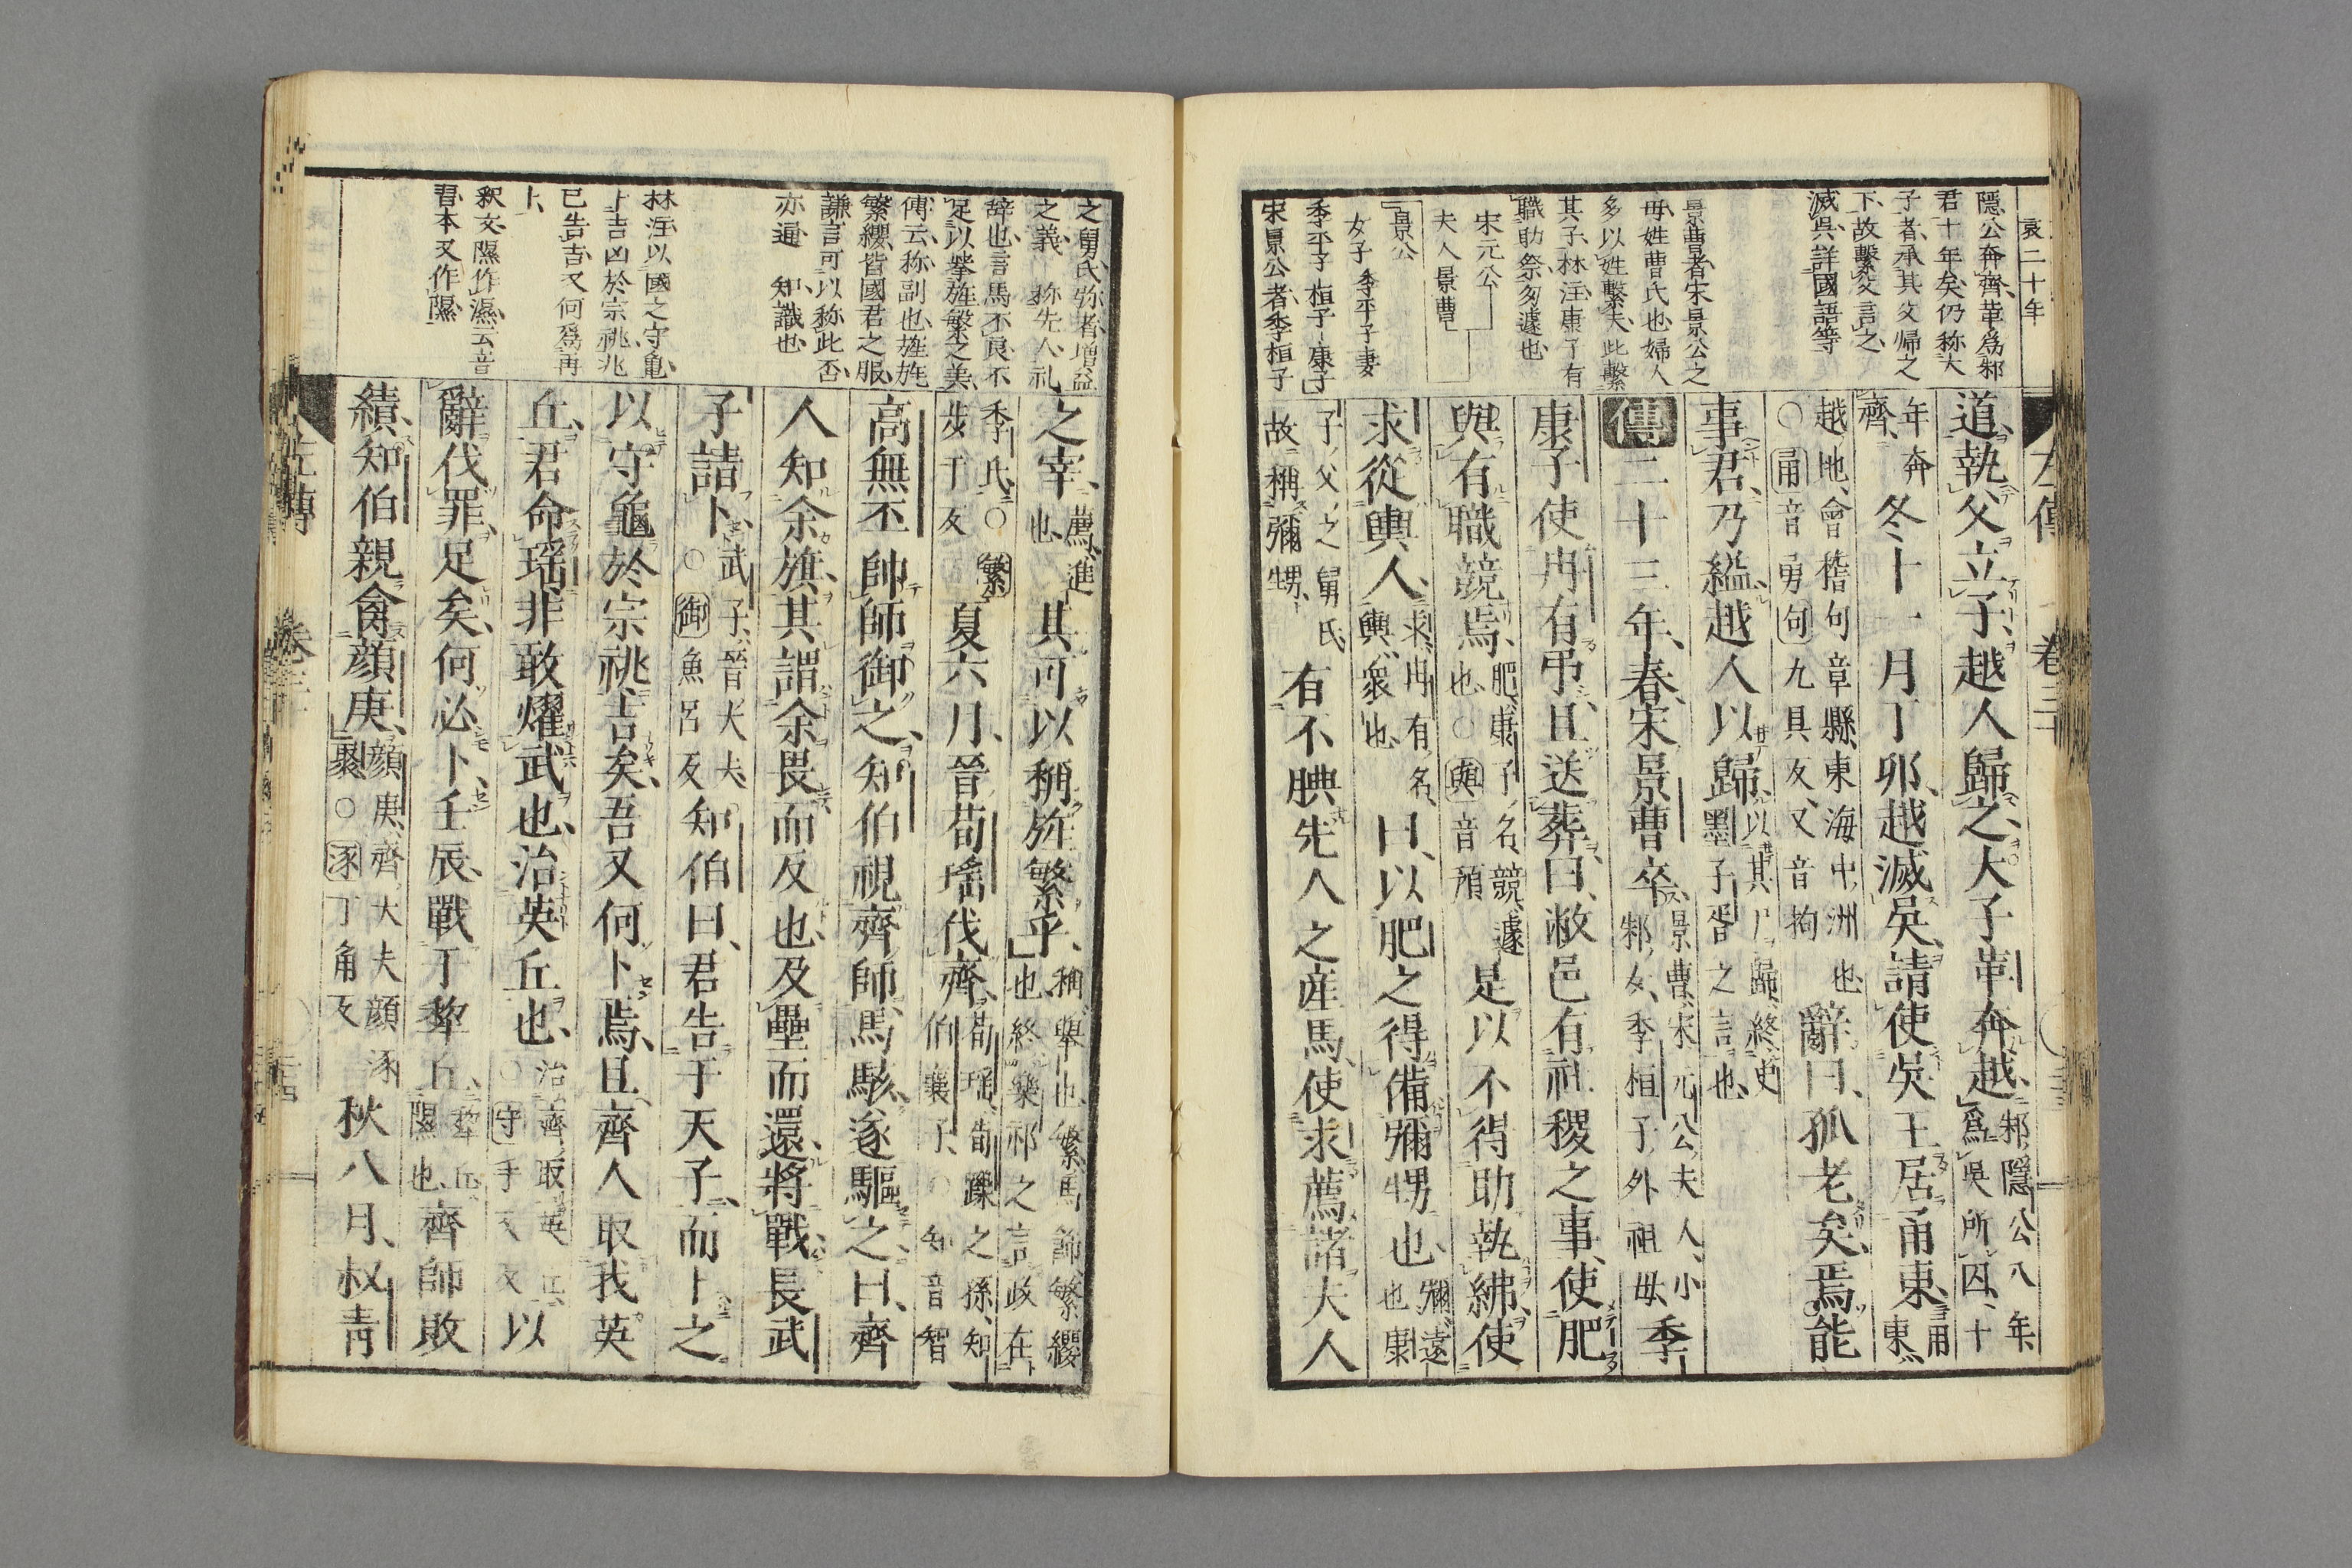 哀二十年
隱公奔齊革爲邾
君十年矣仍称大
子者承其父歸之
下故繫父言之
滅吳詳國語等
景曹者宋景公之
母姓曹氏也婦人
多以姓繫夫此繫
其子林注康子有
職助祭匆遽也
宋元公
夫人景曹
景公
女子 季平子妻
季平子 桓子 康子
宋景公者季桓子
左傳 卷三十
道執父立子越人歸之大子革奔越邾隱公八年爲吳所囚十
年奔齊冬十一月丁卯越滅吳請使吳王居甬東甬東
越地會稽句章縣東海中洲也○甬音勇句九具反又音拘辭曰孤老矣焉能
事君乃縊越人以歸以其尸歸終史墨子胥之言也
傳二十三年春宋景曹卒景曹宋元公夫人小邾女季桓子外祖母季
康子使冉有弔且送葬曰敝邑有社稷之事使肥
與有職競焉肥康子名競遽也○與音預是以不得助執紼使
求從輿人求冉有名輿衆也曰以肥之得備彌甥也彌遠也康
子父之舅氏故稱彌甥有不腆先人之産馬使求薦諸夫人
之舅氏弥者増益
之義 称先人礼
辞也言馬不良不
足以挙旌繁之美
傳云称副也旌旄
繁纓皆國君之服
謙言可以称此否
亦通 知識也
林注以國之守亀
卜吉凶於宗祧兆
已告吉又何爲再
卜
釈文隰作濕云音
習本又作隰
之宰薦進也其可以稱旌繁乎稱舉也繁馬飾繁纓也終樂祁之言政在
季氏○繁步干反夏六月晉荀瑤伐齊荀瑤荀躒之孫知伯襄子○知音智
高無丕帥師御之知伯視齊師馬駭遂驅之曰齊
人知余旗其謂余畏而反也及壘而還將戰長武
子請卜武子晉大夫○御魚呂反知伯曰君告于天子而卜之
以守龜於宗祧吉矣吾又何卜焉且齊人取我英
丘君命瑤非敢燿武也治英丘也治齊取英丘○守手又反以
辭伐罪足矣何必卜壬辰戰于犂丘犂丘隰也齊師敗
績知伯親禽顔庚顔庚齊大夫顔涿聚○涿丁角反秋八月叔青
左傳 卷三十